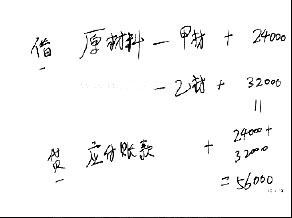 借 原材料 — 甲材 + 24000
— 乙材 + 32000
=
24000+
贷 应付账款 + 32000
=56000